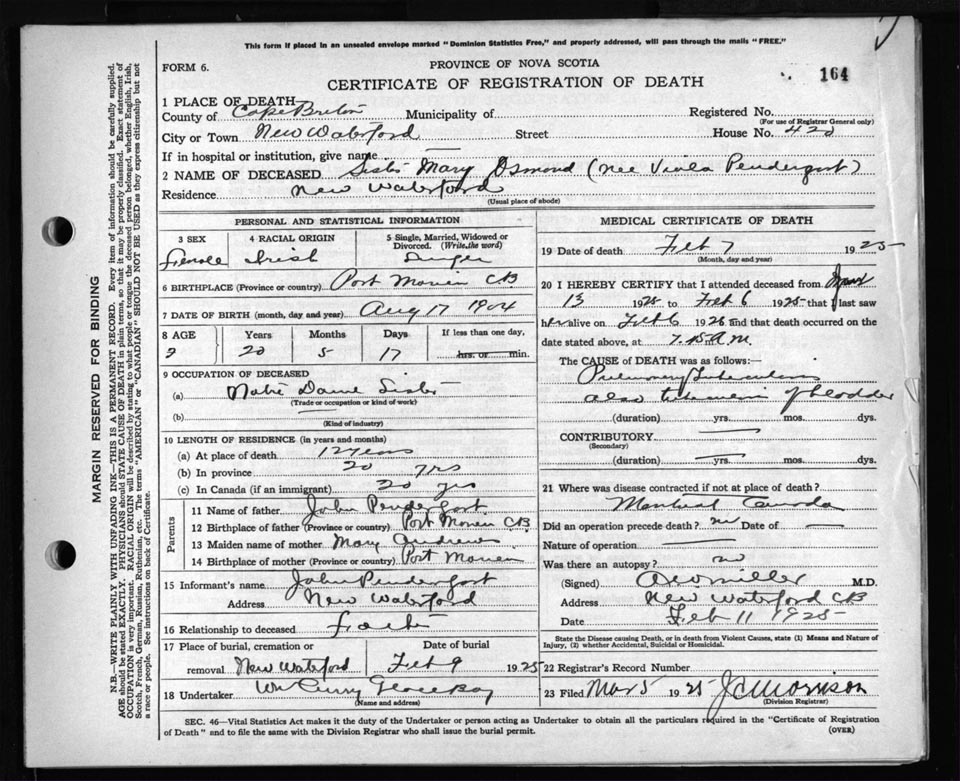 This form if placed in an unsealed envelope marked "Dominion Statistics Free," and properly addressed, will pass through the mails "FREE."
FORM 6.
PROVINCE OF NOVA SCOTIA
CERTIFICATE OF REGISTRATION OF DEATH
164
1 PLACE OF DEATH
County of Cape Breton Municipality of Registered No.
(For use of Registrar General only)
City or Town New Waterford Street House No. 420
If in hospital or institution, give name
2 NAME OF DECEASED Sister Mary Osmond (nee Viola Pendergast)
Residence New Waterford
(Usual place of abode)
PERSONAL AND STATISTICAL INFORMATION
3 SEX 4 RACIAL ORIGIN 5 Single, Married, Widowed or Divorced. (Write the word)
Female Irish Single
6 BIRTHPLACE (Province or country) Port Morien CB
7 DATE OF BIRTH (month, day and year) Aug 17 1904
8 AGE Years Months Days If less than one day,
20 5 17 hrs. or min.
9 OCCUPATION OF DECEASED
(a) Notre Dame Sister
(Trade or occupation or kind of work)
(b)
(Kind of industry)
10 LENGTH OF RESIDENCE (in years and months)
(a) At place of death 12 years
(b) In province 20 yrs
(c) In Canada (if an immigrant) 20 yrs
Parents
11 Name of father John Pendergast
12 Birthplace of father (Province or country) Port Morien CB
13 Maiden name of mother Mary Andrews
14 Birthplace of mother (Province or country) Port Morien
15 Informant's name John Pendergast
Address New Waterford
16 Relationship to deceased Father
17 Place of burial, cremation or removal Date of burial
New Waterford Feb 9 1925
18 Undertaker Wm Perry Glace Bay
(Name and address)
MEDICAL CERTIFICATE OF DEATH
19 Date of death Feb 7 1925
(Month, day and year)
20 I HEREBY CERTIFY that I attended deceased from
13 1925 to Feb 6 1925 that I last saw
her alive on Feb 6 1925 and that death occurred on the
date stated above, at 7.15 A.M.
The CAUSE of DEATH was as follows:
Pulmonary Tuberculosis
also tuberculosis of bladder
(duration) yrs. mos. dys.
CONTRIBUTORY
(Secondary)
(duration) yrs. mos. dys.
21 Where was disease contracted if not at place of death?
Montreal Canada
Did an operation precede death? no Date of
Nature of operation
Was there an autopsy? no
(Signed) A W Miller M.D.
Address New Waterford CB
Date Feb 11 1925
State the Disease causing Death, or in death from Violent Causes, state (1) Means and Nature of Injury, (2) whether Accidental, Suicidal or Homicidal.
22 Registrar's Record Number
23 Filed Mar 5 1925 J C Morrison
(Division Registrar)
SEC. 46—Vital Statistics Act makes it the duty of the Undertaker or person acting as Undertaker to obtain all the particulars required in the "Certificate of Registration
of Death" and to file the same with the Division Registrar who shall issue the burial permit.
(OVER)
MARGIN RESERVED FOR BINDING
N.B.—WRITE PLAINLY WITH UNFADING INK—THIS IS A PERMANENT RECORD. Every item of information should be carefully supplied.
AGE should be stated EXACTLY. PHYSICIANS should STATE CAUSE OF DEATH in plain terms, so that it may be properly classified. Exact statement of
OCCUPATION is very important. RACIAL ORIGIN will be described by stating to what people or tongue the deceased person belonged, whether English, Irish,
Scotch, French, German, Russian, Ruthenian, etc. The terms "AMERICAN" or "CANADIAN" SHOULD NOT BE USED as they express citizenship but not
a race or people. See instructions on back of Certificate.